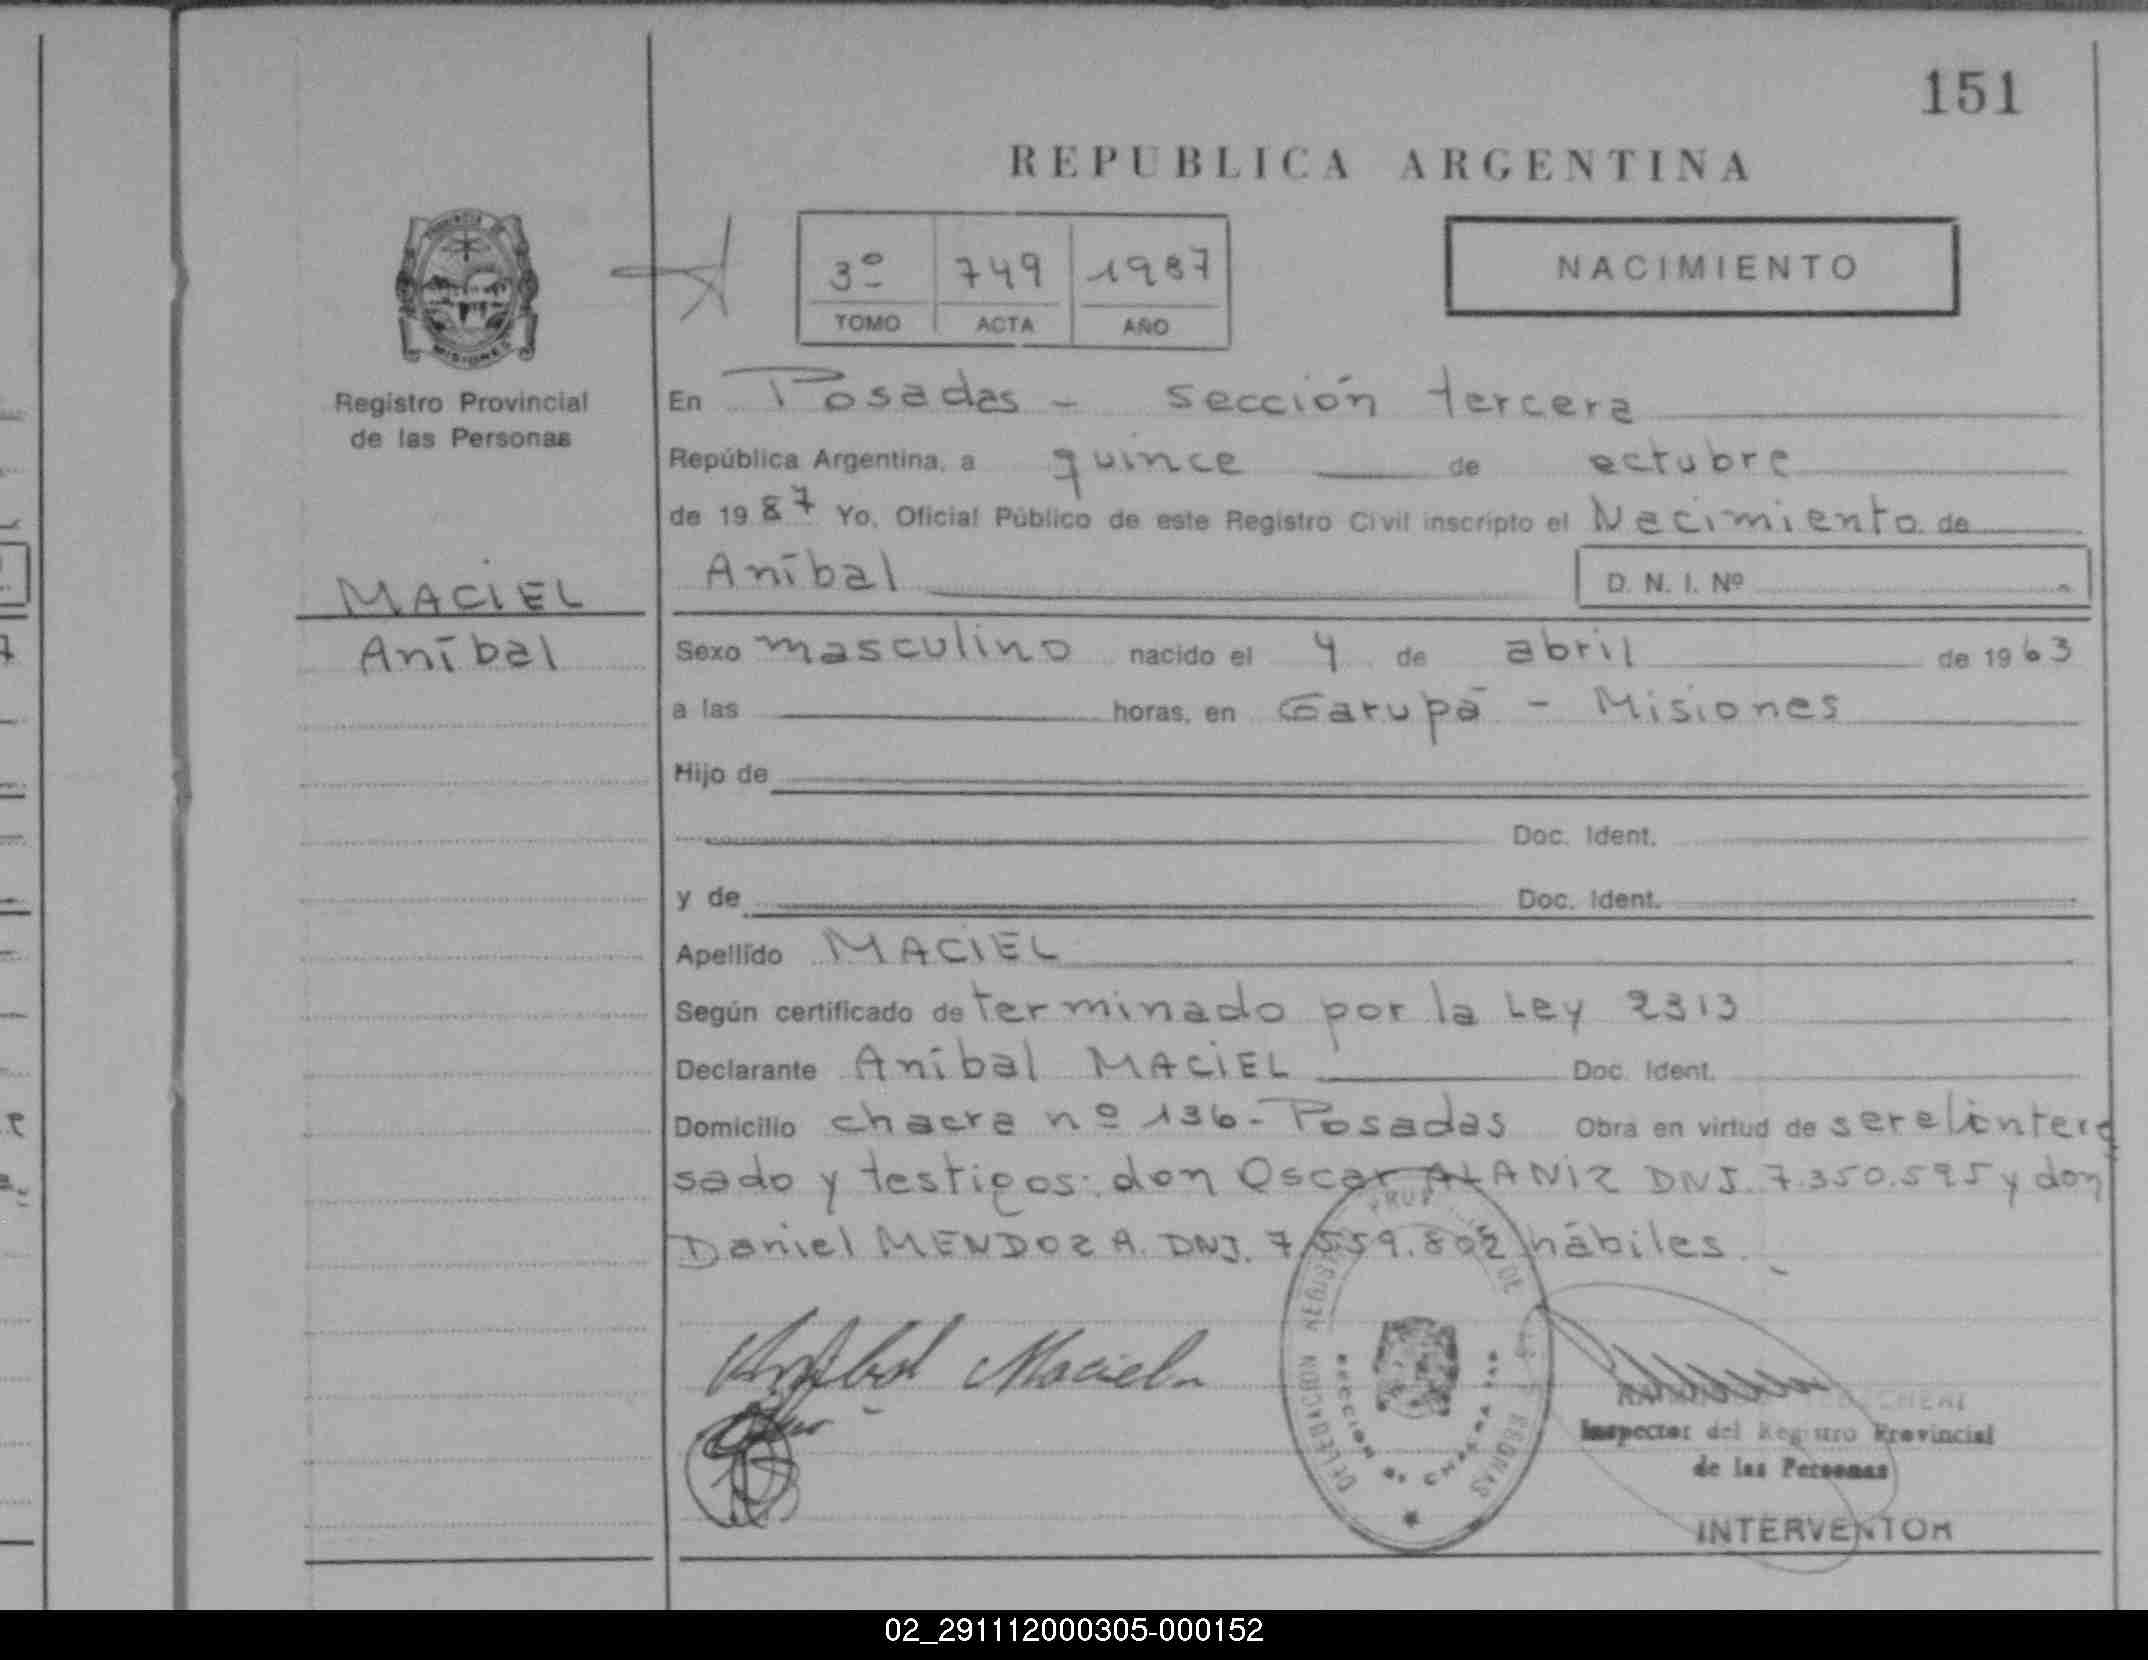 151
REPUBLICA ARGENTINA
3º 749 1987
TOMO ACTA AÑO
NACIMIENTO
PROVINCIA
MISIONES
Registro Provincial
de las Personas
MACIEL
Aníbal
En Posadas - sección tercera
República Argentina, a quince de octubre
de 1987 Yo, Oficial Público de este Registro Civil inscripto el Nacimiento de
Aníbal D. N. I. Nº
Sexo masculino nacido el 4 de abril de 1963
a las horas, en Garupá - Misiones
Hijo de
Doc. Ident.
y de Doc. Ident.
Apellido MACIEL
Según certificado determinado por la Ley 2313
Declarante Aníbal MACIEL Doc. Ident.
Domicilio chacra nº 136 - Posadas Obra en virtud de ser el intere
sado y testigos: don Oscar ALANIZ DNI. 7.350.595 y don
Daniel MENDOZA. DNI. 7.559.802 hábiles.
Aníbal Maciel
DELEGACION
SECCION
Inspector del Registro Provincial
de las Personas
INTERVENTOR
02_291112000305-000152